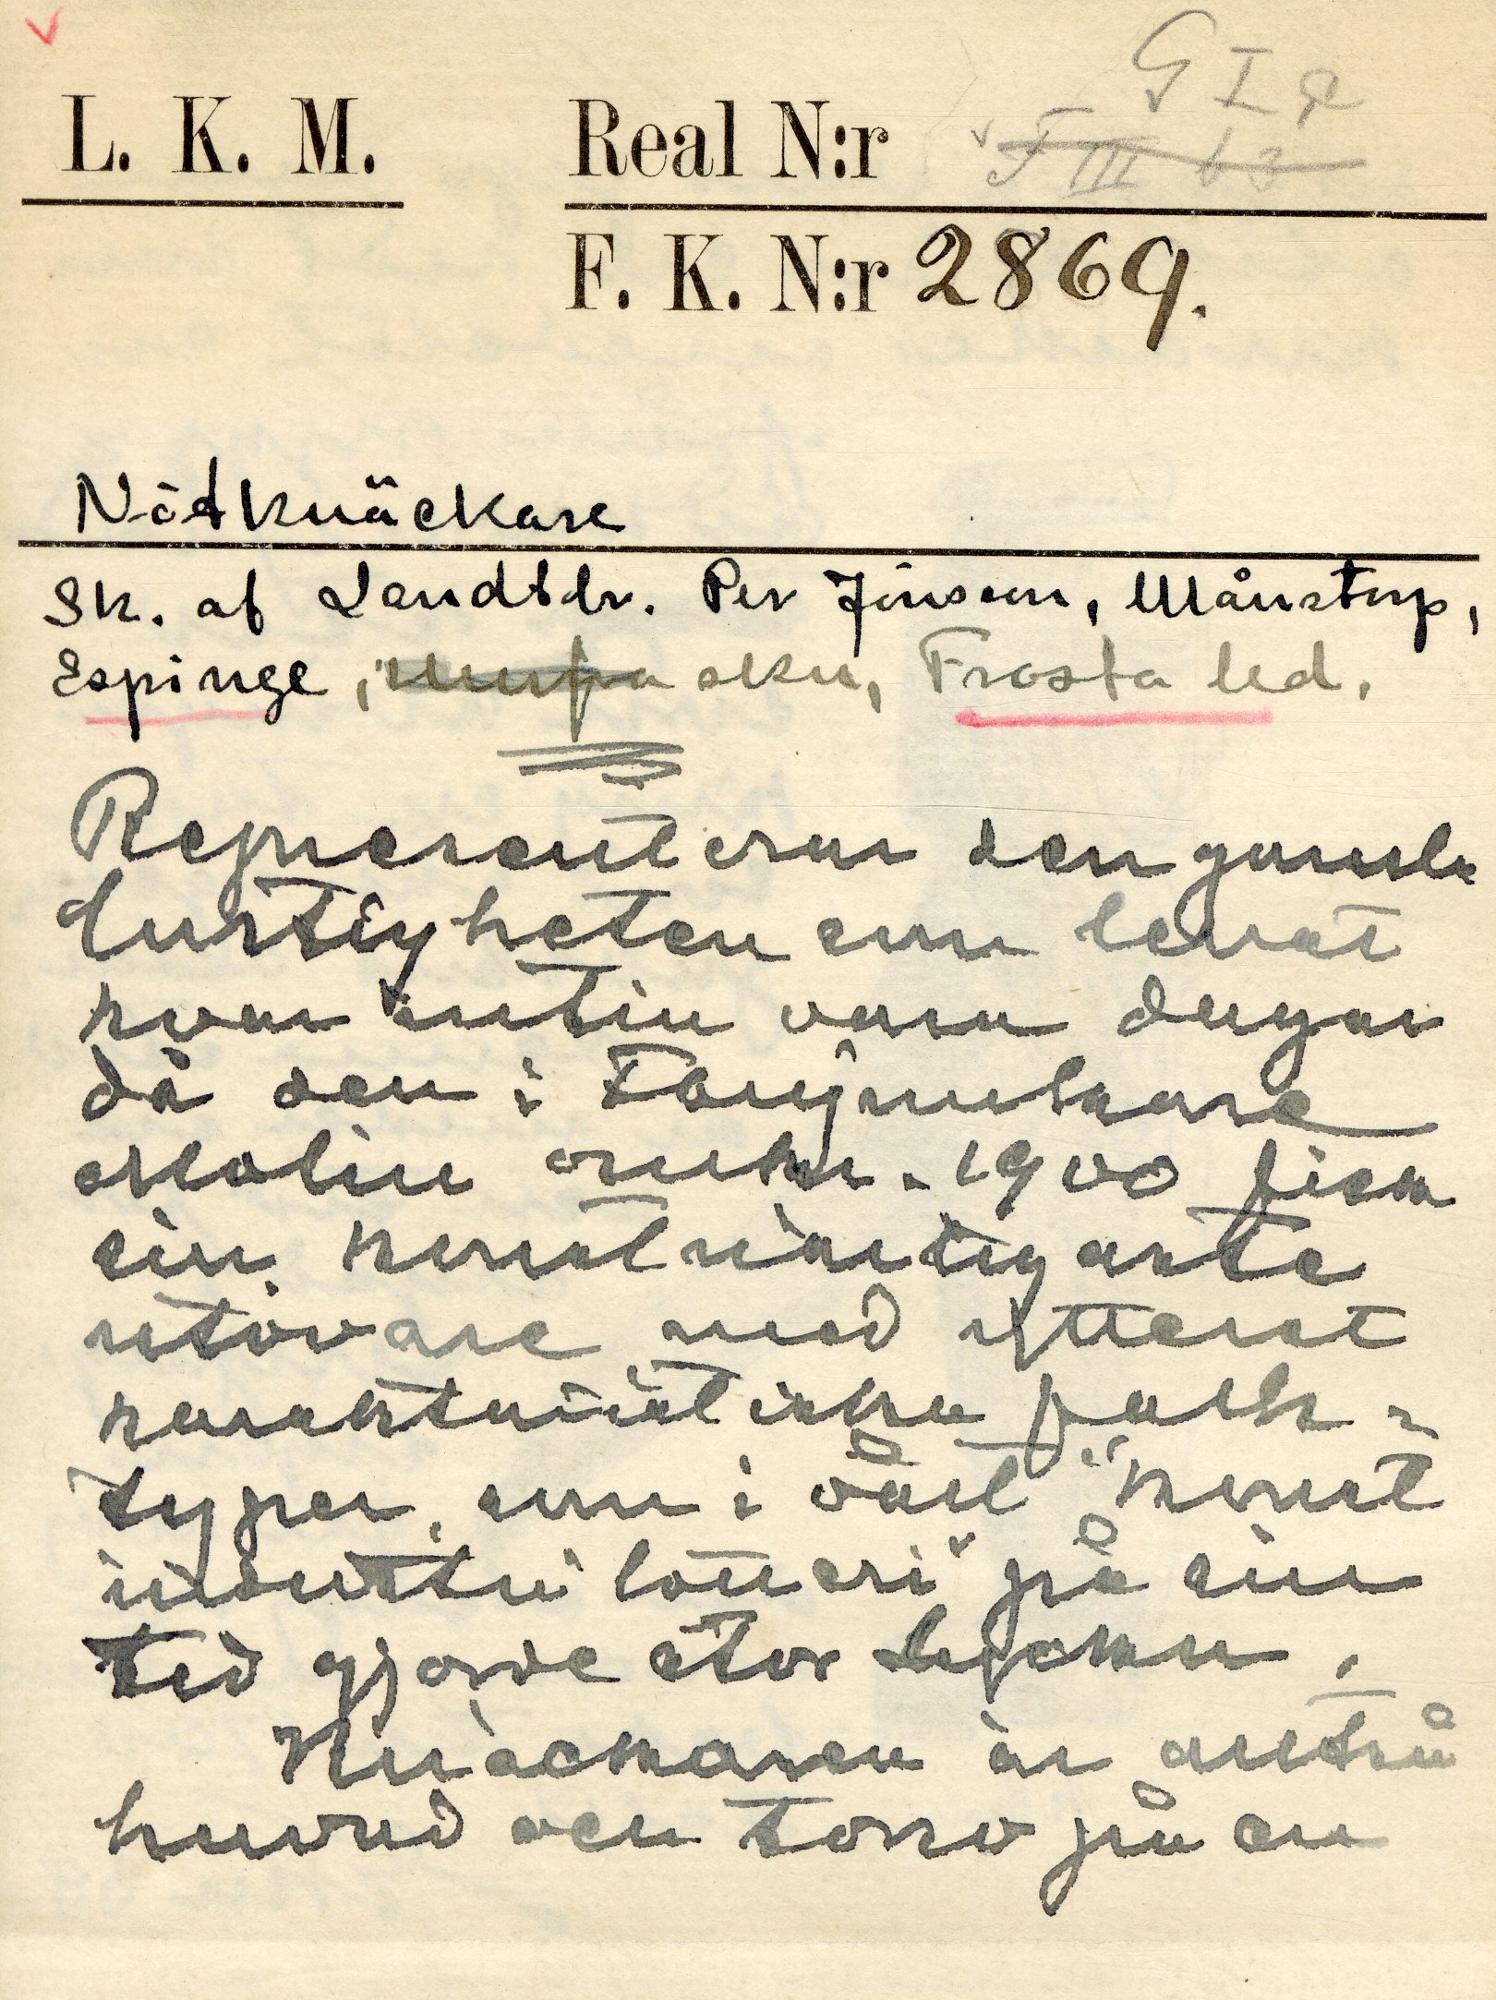 L. K. M. Real N:r G I
F III b 3
F. K. N:r 2869.
Nötknäckare
Sk. af Landtbr. Per Jönsson, Månstorp,
Espinge, skn, Frosta hd.
Representerar den gamla
lustigheten som levat
kvar intin våra dagar
då den i
Malin omkr. 1900 fick
sin konstnärligaste
utövare med ytterst
karaktäristiska folk-
typer, som i vårt "konst
industri lotteri" på sin
tid gjorde stor lycka.
Knäckaren är
huvud och torso på en